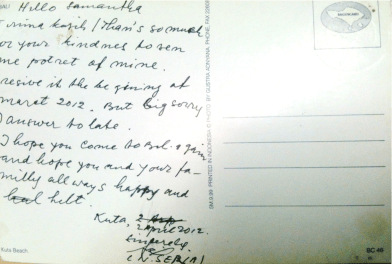 Hello Samantha
rima kasih / Than's so much
or your kindnes to sen
me potret of mine.
resive it the begining of
marat 2012. But big sorry
I answer to late.
I hope you come to Bali again
and hope you and your fa-
milly all ways happy and
helt.
Kuta
2 April 2012.
Sincerely.
Kuta Beach
BC 46